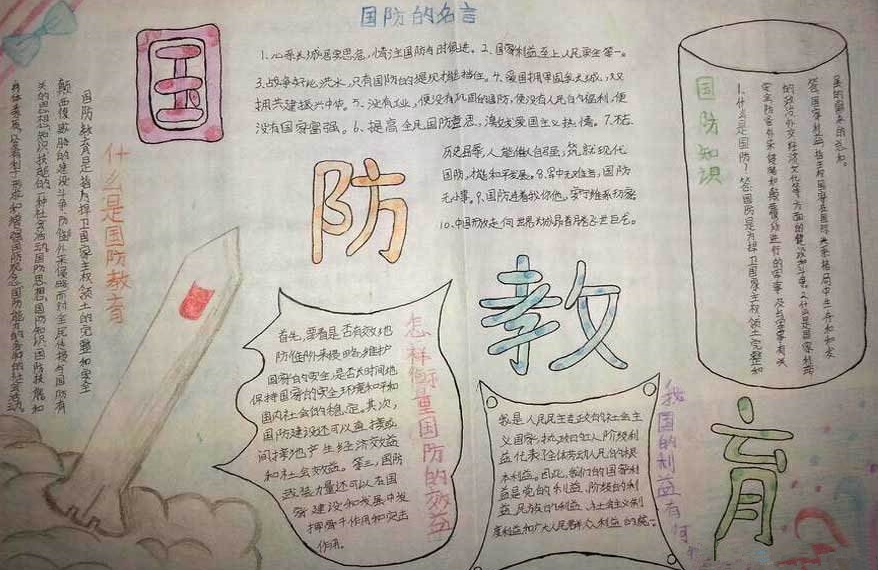 国防的名言
国
1、心系长城居安思危,情注国防与时俱进。2、国家利益至上人民安全第一。
3、战争好比洪水,只有国防的堤坝才能挡住。4、爱国拥军固我长城,双
拥共建振兴中华。5、没有工业,便没有巩固的国防,便没有人民的福利,便
没有国家富强。6、提高全民国防意思,演练爱国主义热情。7、
历史屈辱,人能做人自强,筑就现代
国防,才能和平发展。8、
无小事。9、国防连着我你他,安宁维系千万家
10、中国
防
教
育
国防知识
1、什么是国防?答:国防是为捍卫国家主权领土完整和
安全防备外来侵略和颠覆所进行的军事及与军事有关
的政治外交经济文化等方面的建设和斗争。2、什么是国家利益
答:国家利益指主权国家在国际关系格局中生存和
什么是国防教育
国防教育是指为捍卫国家主权领土的完整和安全
颠西侵威胁的建设斗争防御外来侵略而对全民传授与国防有
关的思想、知识、技能的一种社会活动国防思想、国防知识、国防技能和
怎样衡量国防的效益
首先,要看是否有效地
防御外来侵略,维护
国家的安全,是否长时间地
保持国家的安全环境和平和
国内社会的稳定。其次,
国防建设还可以直接或
间接地产生经济效益
和社会效益。第三,国防
武装力量还可以在国
家建设和发展中发
挥骨干作用和突击
作用。
我国的利益有何
我是人民民主专政的社会主
义国家,执政的工人阶级利
益代表了全体劳动人民的根
本利益。因此,我们的国家利
益是党的利益、阶级的利
益、民族的利益、社会主义制
度利益和广大人民群众利益的统一